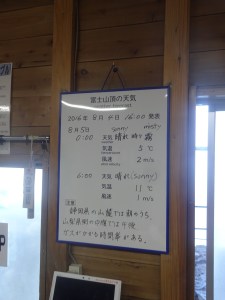 富士山頂の天気
2016年 8月 4日 16:00 発表
8月5日 sunny misty
0:00 天気 晴れ 時々 霧
気温 5 ℃
風速 2 m/s
6:00 天気 晴れ (Sunny)
気温 11 ℃
風速 1 m/s
注意
静岡県の山麓では朝のうち、
山梨県側の山麓では午後
ガスがかかる時間帯がある。